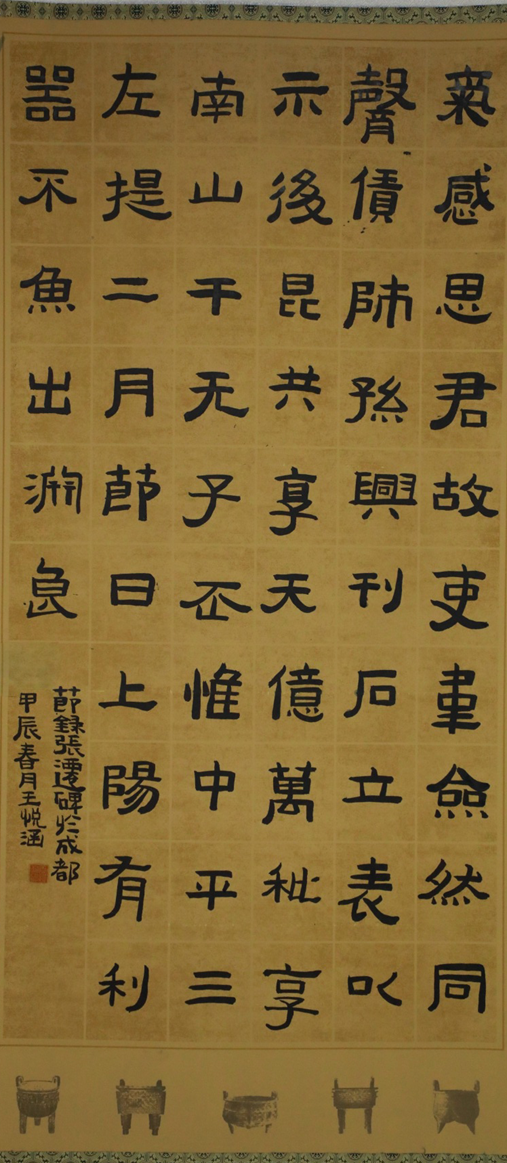 氣感思君故吏韋僉然同
聲債師孫興刊石立表以
示後昆共享天億萬秕享
南山干无子丕惟中平三
左提二月節日上陽有利
器不魚出淵良
節錄張遷碑於成都
甲辰春月王悦涵